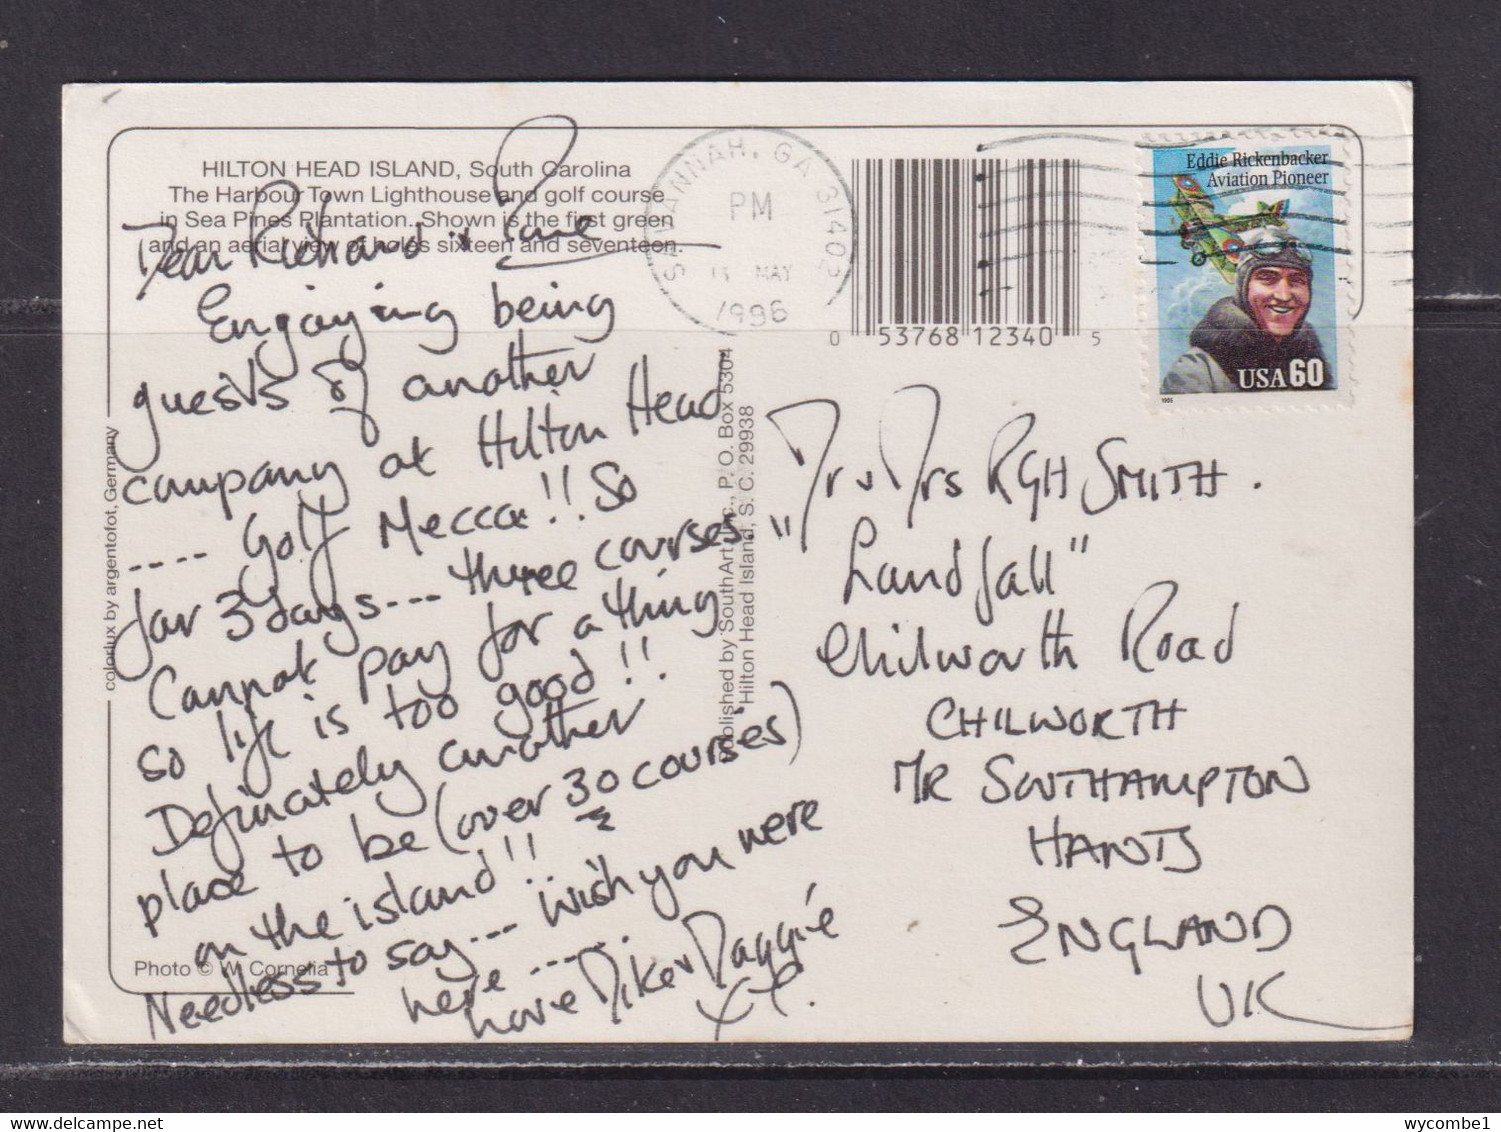 HILTON HEAD ISLAND, South Carolina
The Harbour Town Lighthouse and golf course
in Sea Pines Plantation. Shown is the first green
and an aerial view of holes sixteen and seventeen.
Dear Richard + 
Enjoying being
guests of another
company at Hilton Head
---- Golf Mecca!! So
far 3 days --- three courses.
Cannot pay for a thing
so life is too good!!
Definately another
place to be (over 30 courses)
on the island!!
Needless to say --- wish you were
here -----..
Love Mike + Maggie
Photo © W. Cornelia
colorlux by argentofot, Germany
Published by SouthArt, Inc., P. O. Box 5304
Hilton Head Island, S. C. 29938
SAVANNAH, GA 31402
PM
13 MAY
1996
0 53768 12340 5
Eddie Rickenbacker
Aviation Pioneer
USA 60
1995
Mr + Mrs RGH SMITH.
"Landfall"
Chilworth Road
CHILWORTH
NR SOUTHAMPTON
HANTS
ENGLAND
UK
wycombe1